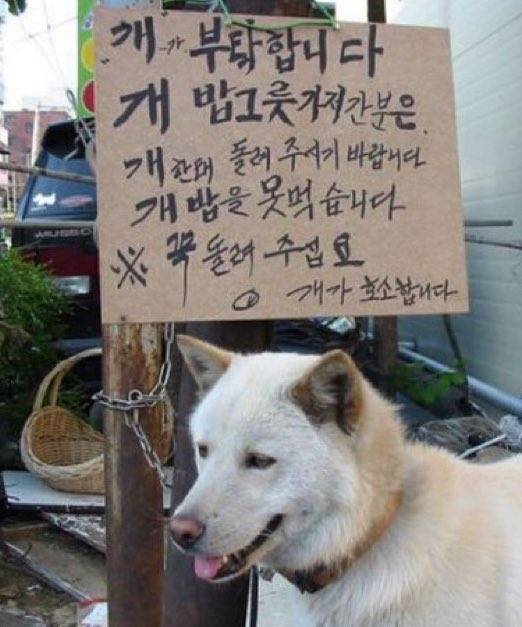 "개"가 부탁합니다
개 밥그릇 가져간분은
개한테 돌려 주시기 바랍니다
개 밥을 못먹습니다
※ 꼭 돌려 주섭요
개가 호소합니다
MUSSO